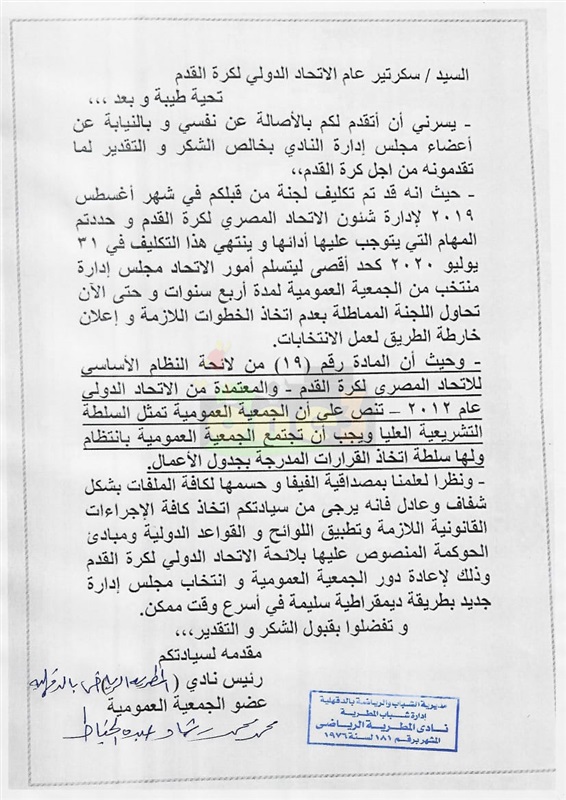 السيد / سكرتير عام الاتحاد الدولي لكرة القدم
تحية طيبة و بعد ،،،
- يسرني أن أتقدم لكم بالأصالة عن نفسي و بالنيابة عن
أعضاء مجلس إدارة النادي بخالص الشكر و التقدير لما
تقدمونه من اجل كرة القدم،،
- حيث انه قد تم تكليف لجنة من قبلكم في شهر أغسطس
٢٠١٩ لإدارة شئون الاتحاد المصري لكرة القدم و حددتم
المهام التي يتوجب عليها أدائها و ينتهي هذا التكليف في ٣١
يوليو ٢٠٢٠ كحد أقصى ليتسلم أمور الاتحاد مجلس إدارة
منتخب من الجمعية العمومية لمدة أربع سنوات و حتى الآن
تحاول اللجنة المماطلة بعدم اتخاذ الخطوات اللازمة و إعلان
خارطة الطريق لعمل الانتخابات.
- وحيث أن المادة رقم (١٩) من لائحة النظام الأساسي
للاتحاد المصري لكرة القدم - والمعتمدة من الاتحاد الدولي
عام ٢٠١٢ – تنص علي أن الجمعية العمومية تمثل السلطة
التشريعية العليا ويجب أن تجتمع الجمعية العمومية بانتظام
ولها سلطة اتخاذ القرارات المدرجة بجدول الأعمال.
- ونظرا لعلمنا بمصداقية الفيفا و حسمها لكافة الملفات بشكل
شفاف وعادل فانه يرجى من سيادتكم اتخاذ كافة الإجراءات
القانونية اللازمة وتطبيق اللوائح و القواعد الدولية ومبادئ
الحوكمة المنصوص عليها بلائحة الاتحاد الدولي لكرة القدم
وذلك لإعادة دور الجمعية العمومية و انتخاب مجلس إدارة
جديد بطريقة ديمقراطية سليمة في أسرع وقت ممكن.
و تفضلوا بقبول الشكر و التقدير،،،
مقدمه لسيادتكم
رئيس نادي ( المطرية الرياضى بالدقهلية
عضو الجمعية العمومية
محمد محمد رشاد عبده الخياط
مديرية الشباب والرياضة بالدقهلية
إدارة شباب المطرية
نادى المطرية الرياضى
المشهر برقم ١٨١ لسنة ١٩٧٦